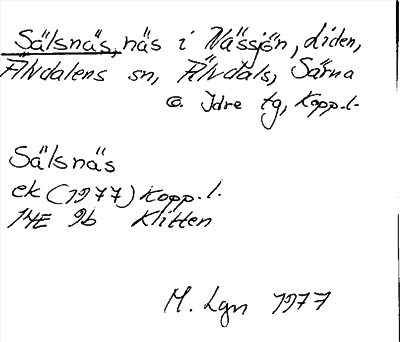 Sälsnäs, näs i Nässjön, Liden,
Älvdalens sn, Älvdals, Särna
o. Idre tg, Kopp. l.
Sälsnäs
ek (1977) Kopp. l.
14E 9b Klitten
M. Lgn 1977